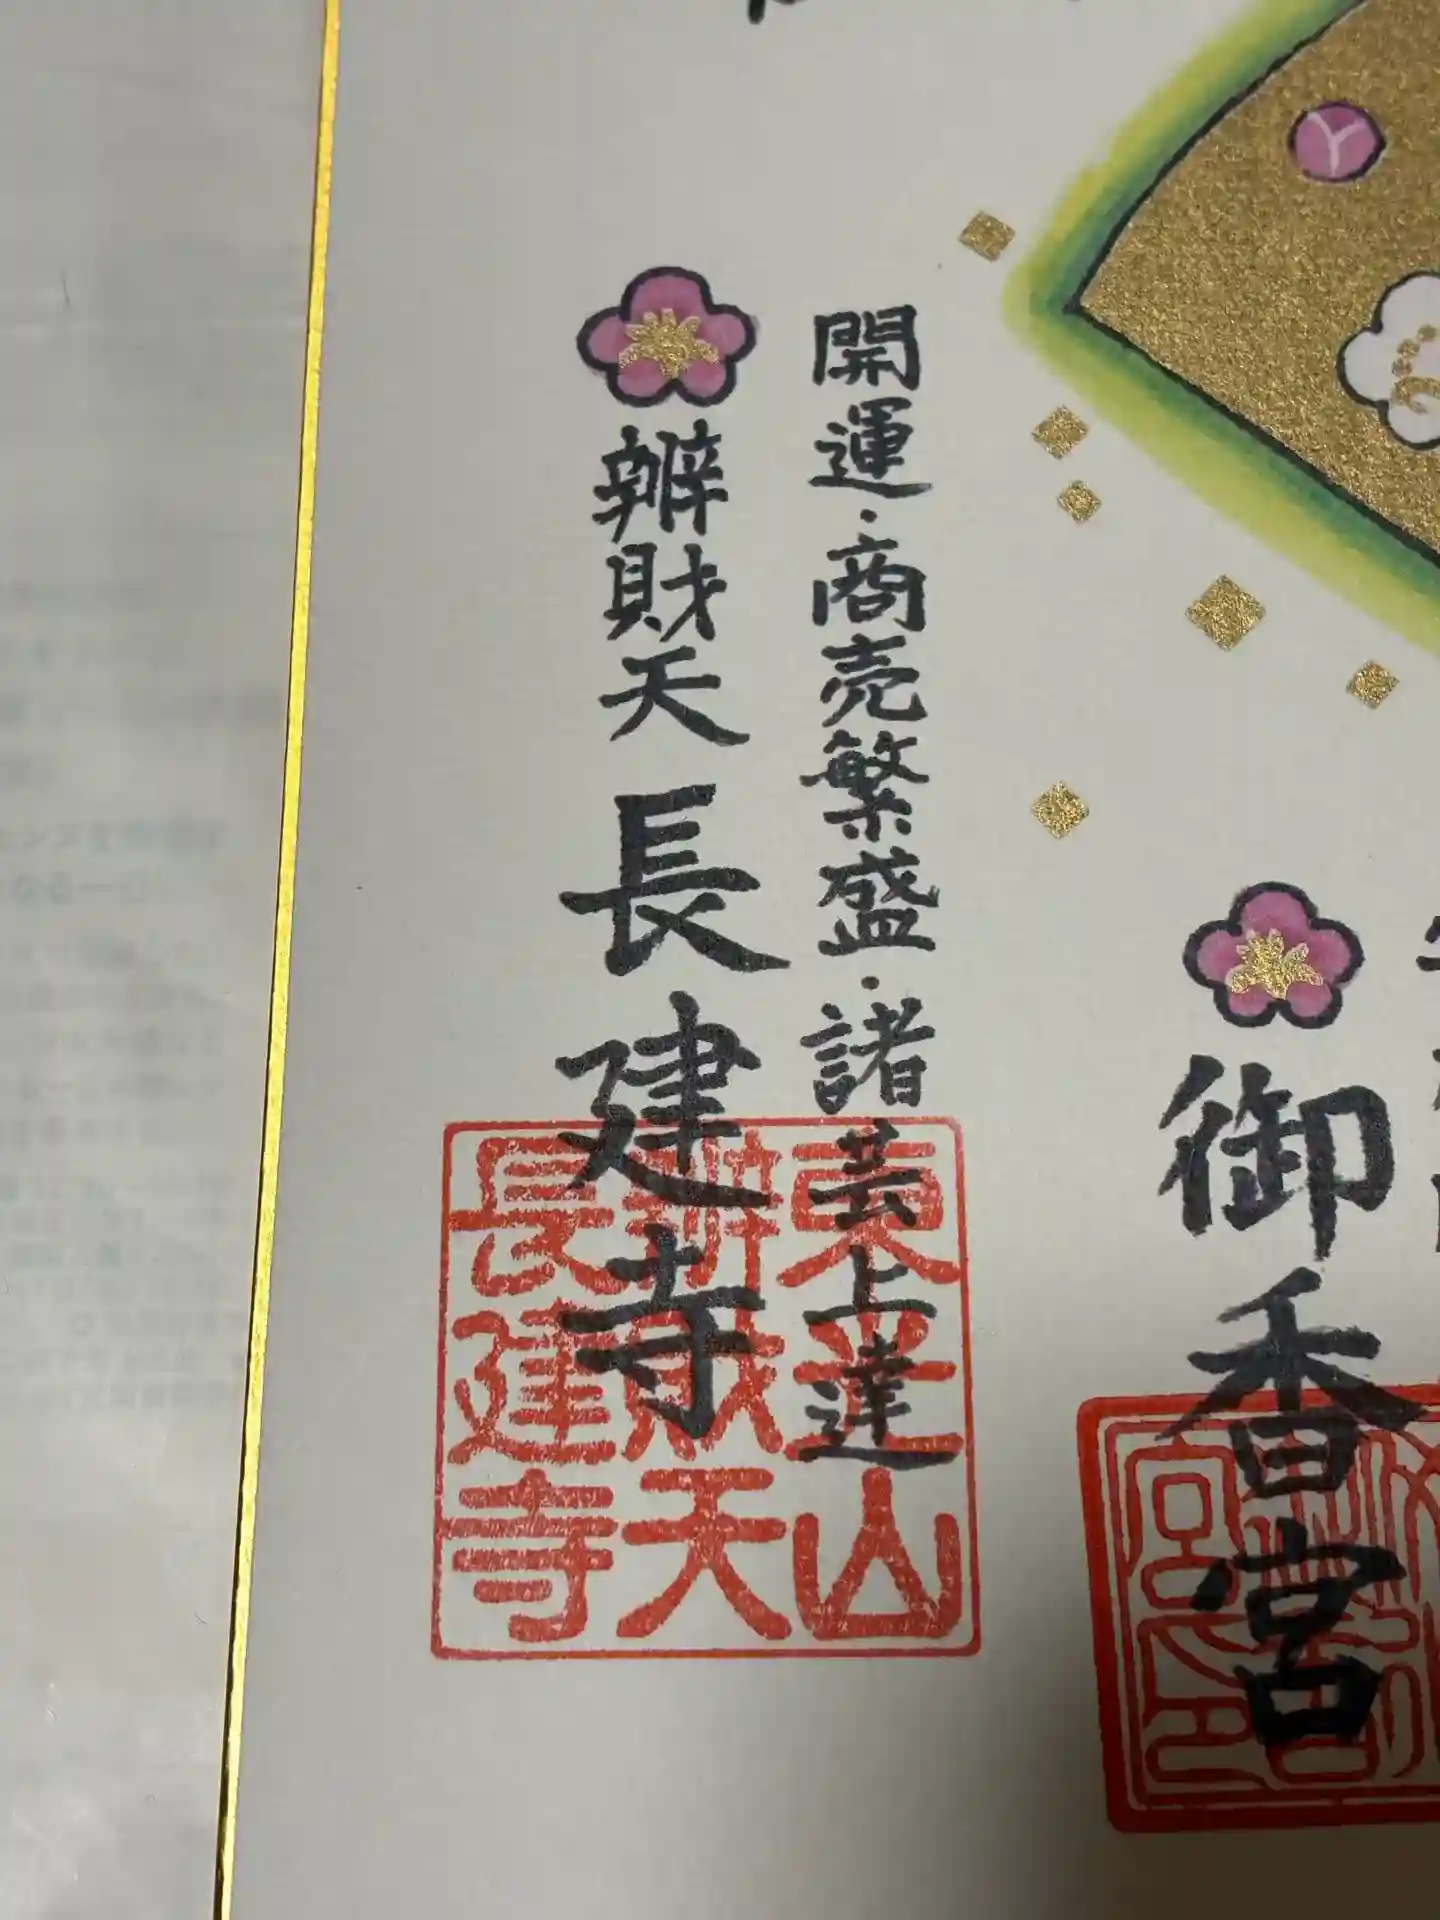 御香宮
開運・商売繁盛・諸芸上達
辨財天 長建寺
東光山
辨財天
長建寺